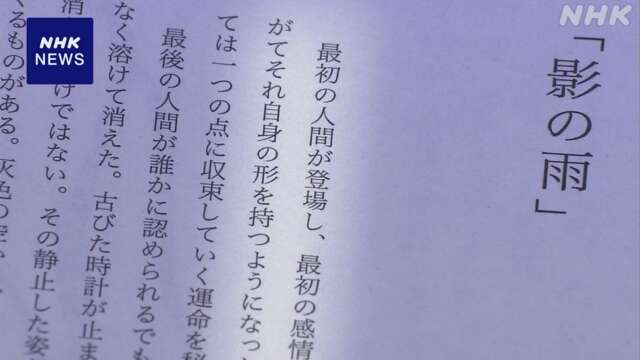 NHK
NEWS
NHK
「影の雨」
最初の人間が登場し、最初の感情
がてそれ自身の形を持つようになっ
ては一つの点に収束していく運命を
最後の人間が誰かに認められるでも
なく溶けて消えた。古びた時計が止ま
消
けではない。その静止した姿
くるものがある。灰色の